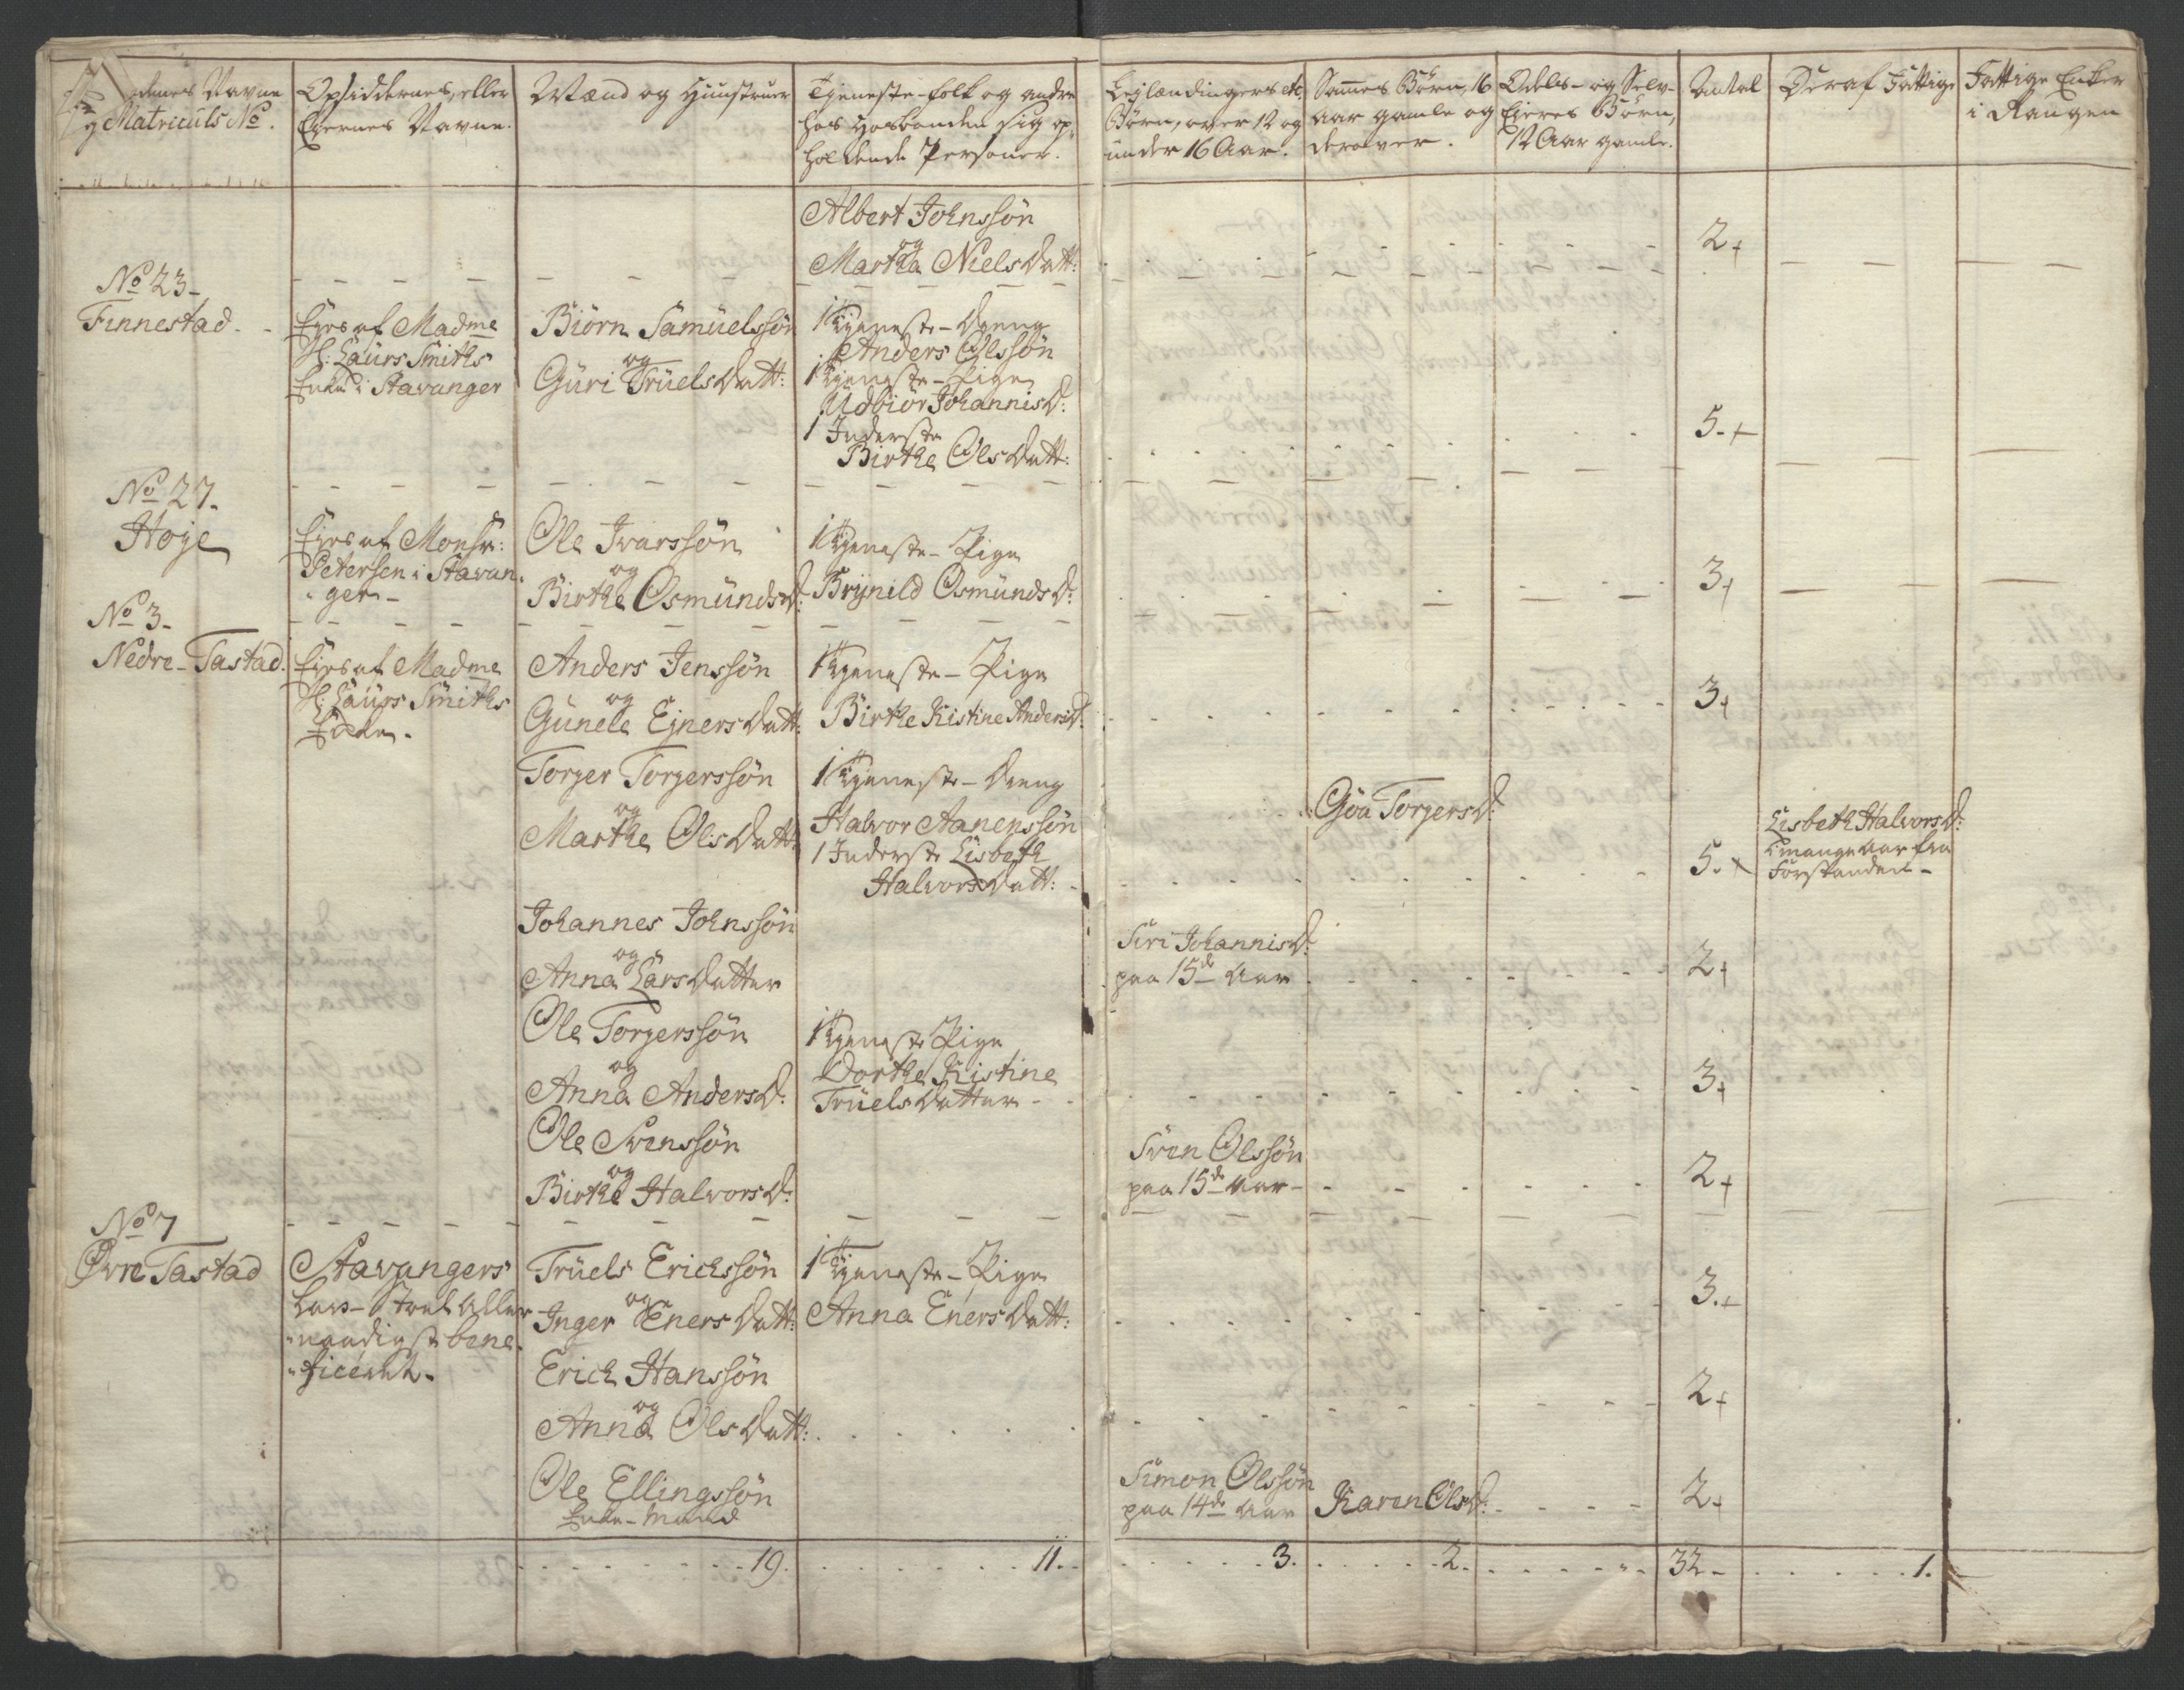 dernes Navne
og Matriculs No.
Opsiddernes, eller
Eyernes Navne.
Mænd og Hünstruer
Tjeneste-folk og andre
hos Hosbonden sig op-
holdende Personer.
Lejlændingers etc.
Börn, over 12 og
under 16 Aar.
Sammes Börn, 16
Aar gamle og
derover.
Odels- og Selv-
Ejeres Börn,
12 Aar gamle.
Antal
Deraf Fattige
Fattige Enker
i Rangen
Albert Johnssön
og
Martha Niels Datt:
2+
No 23-
Finnestad.
Eyes af Madme
Sl: Laurs Smiths
Enke i Stavanger
Biörn Samüelssön
og
Güri Trüels Datt:
1 Tjeneste-Dreng
Anders Olssön
1 Tjeneste-Pige
Udbiör Johannis D:
1 Inderste
Birthe Ols Datt:
5.+
No 27.
Hoje
Eyes af Monsr:
Petersen i Stavan-
ger-
Ole Ivarssön
og
Birthe Osmünds D:
1 Tjeneste-Pige
Brynild Osmünds D:
3+
No 3-
Nedre-Tastad.
Eyes af Madme
Sl: Laurs Smiths
Enke.
Anders Jenssön
og
Gunele Ejners Datt:
1 Tjeneste-Pige
Birthe Kistine Anders D:
3+
Torger Torgerssön
og
Marthe Ols Datt:
1 Tjeneste-Dreng
Halvor Aanenssön
1 Inderste Lisbeth
Halvors Datt:
Göa Torgers D:
5.+
Lisbeth Halvors D:
i mange Aar fra
Forstanden-
Johannes Johnssön
og
Anna Lars Datter
Siri Johannis D:
paa 15de Aar
2+
Ole Torgerssön
og
Anna Anders D:
1 Tjeneste Pige
Dorthe Kistine
Trüels Datter
3+
Ole Svenssön
og
Birthe Halvors D:
Sven Olssön
paa 15de Aar
2+
No 7
Övre Tastad
Stavangers
Aller
naadigst bene-
ficeret.
Trüels Erichssön
og
Inger Eners Datt:
1 Tjeneste-Pige
Anna Eners Datt:
3.+
Erich Hanssön
og
Anna Ols Datt:
2+
Ole Ellingssön
Enke-Mand
Simon Olssön
paa 14de Aar
Karen Ols D:
2+
19.
11.
3.
2.
32-
1.